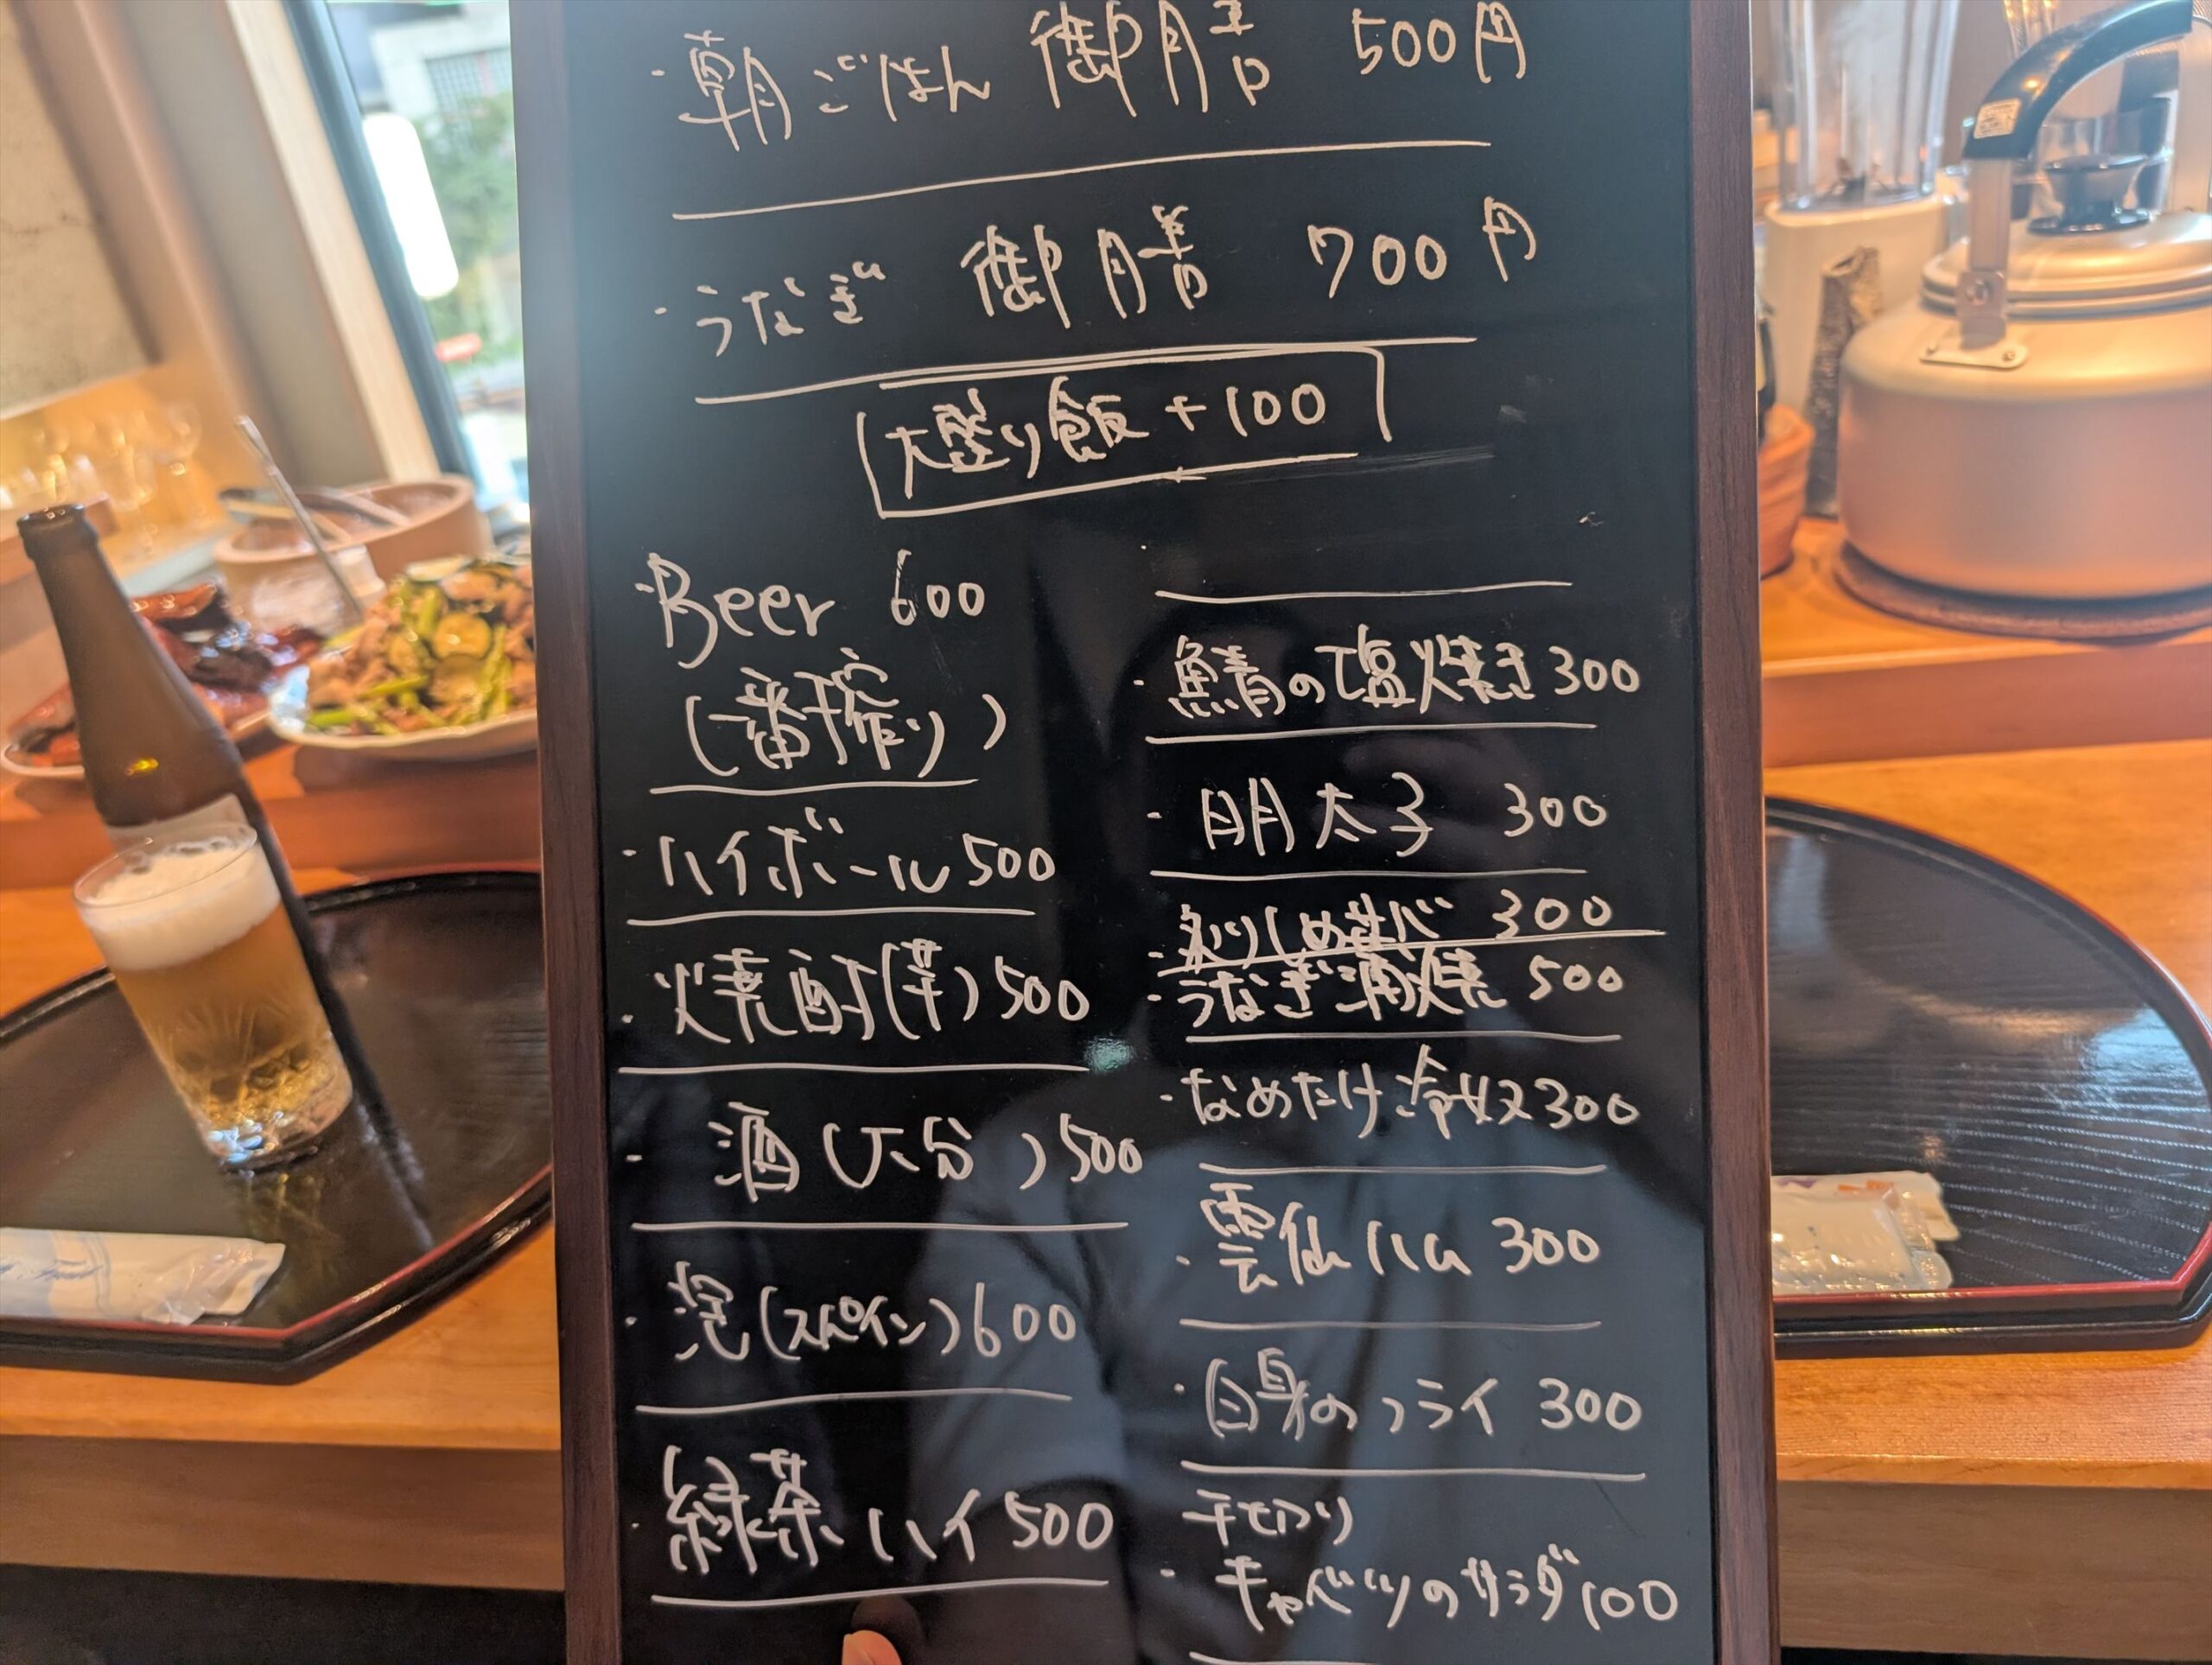 ・朝ごはん 御膳 500円
・うなぎ 御膳 700円
大盛り飯 + 100
・Beer 600
(一番搾り)
・ハイボール 500
・焼酎(芋) 500
・酒(大分) 500
・泡(スペイン) 600
・緑茶ハイ 500
・鯖の塩焼き 300
・明太子 300
・炙りしめサバ 300
・うなぎ蒲焼 500
・なめたけ冷奴 300
・雲仙ハム 300
・白身のフライ 300
千切り
・キャベツのサラダ 100